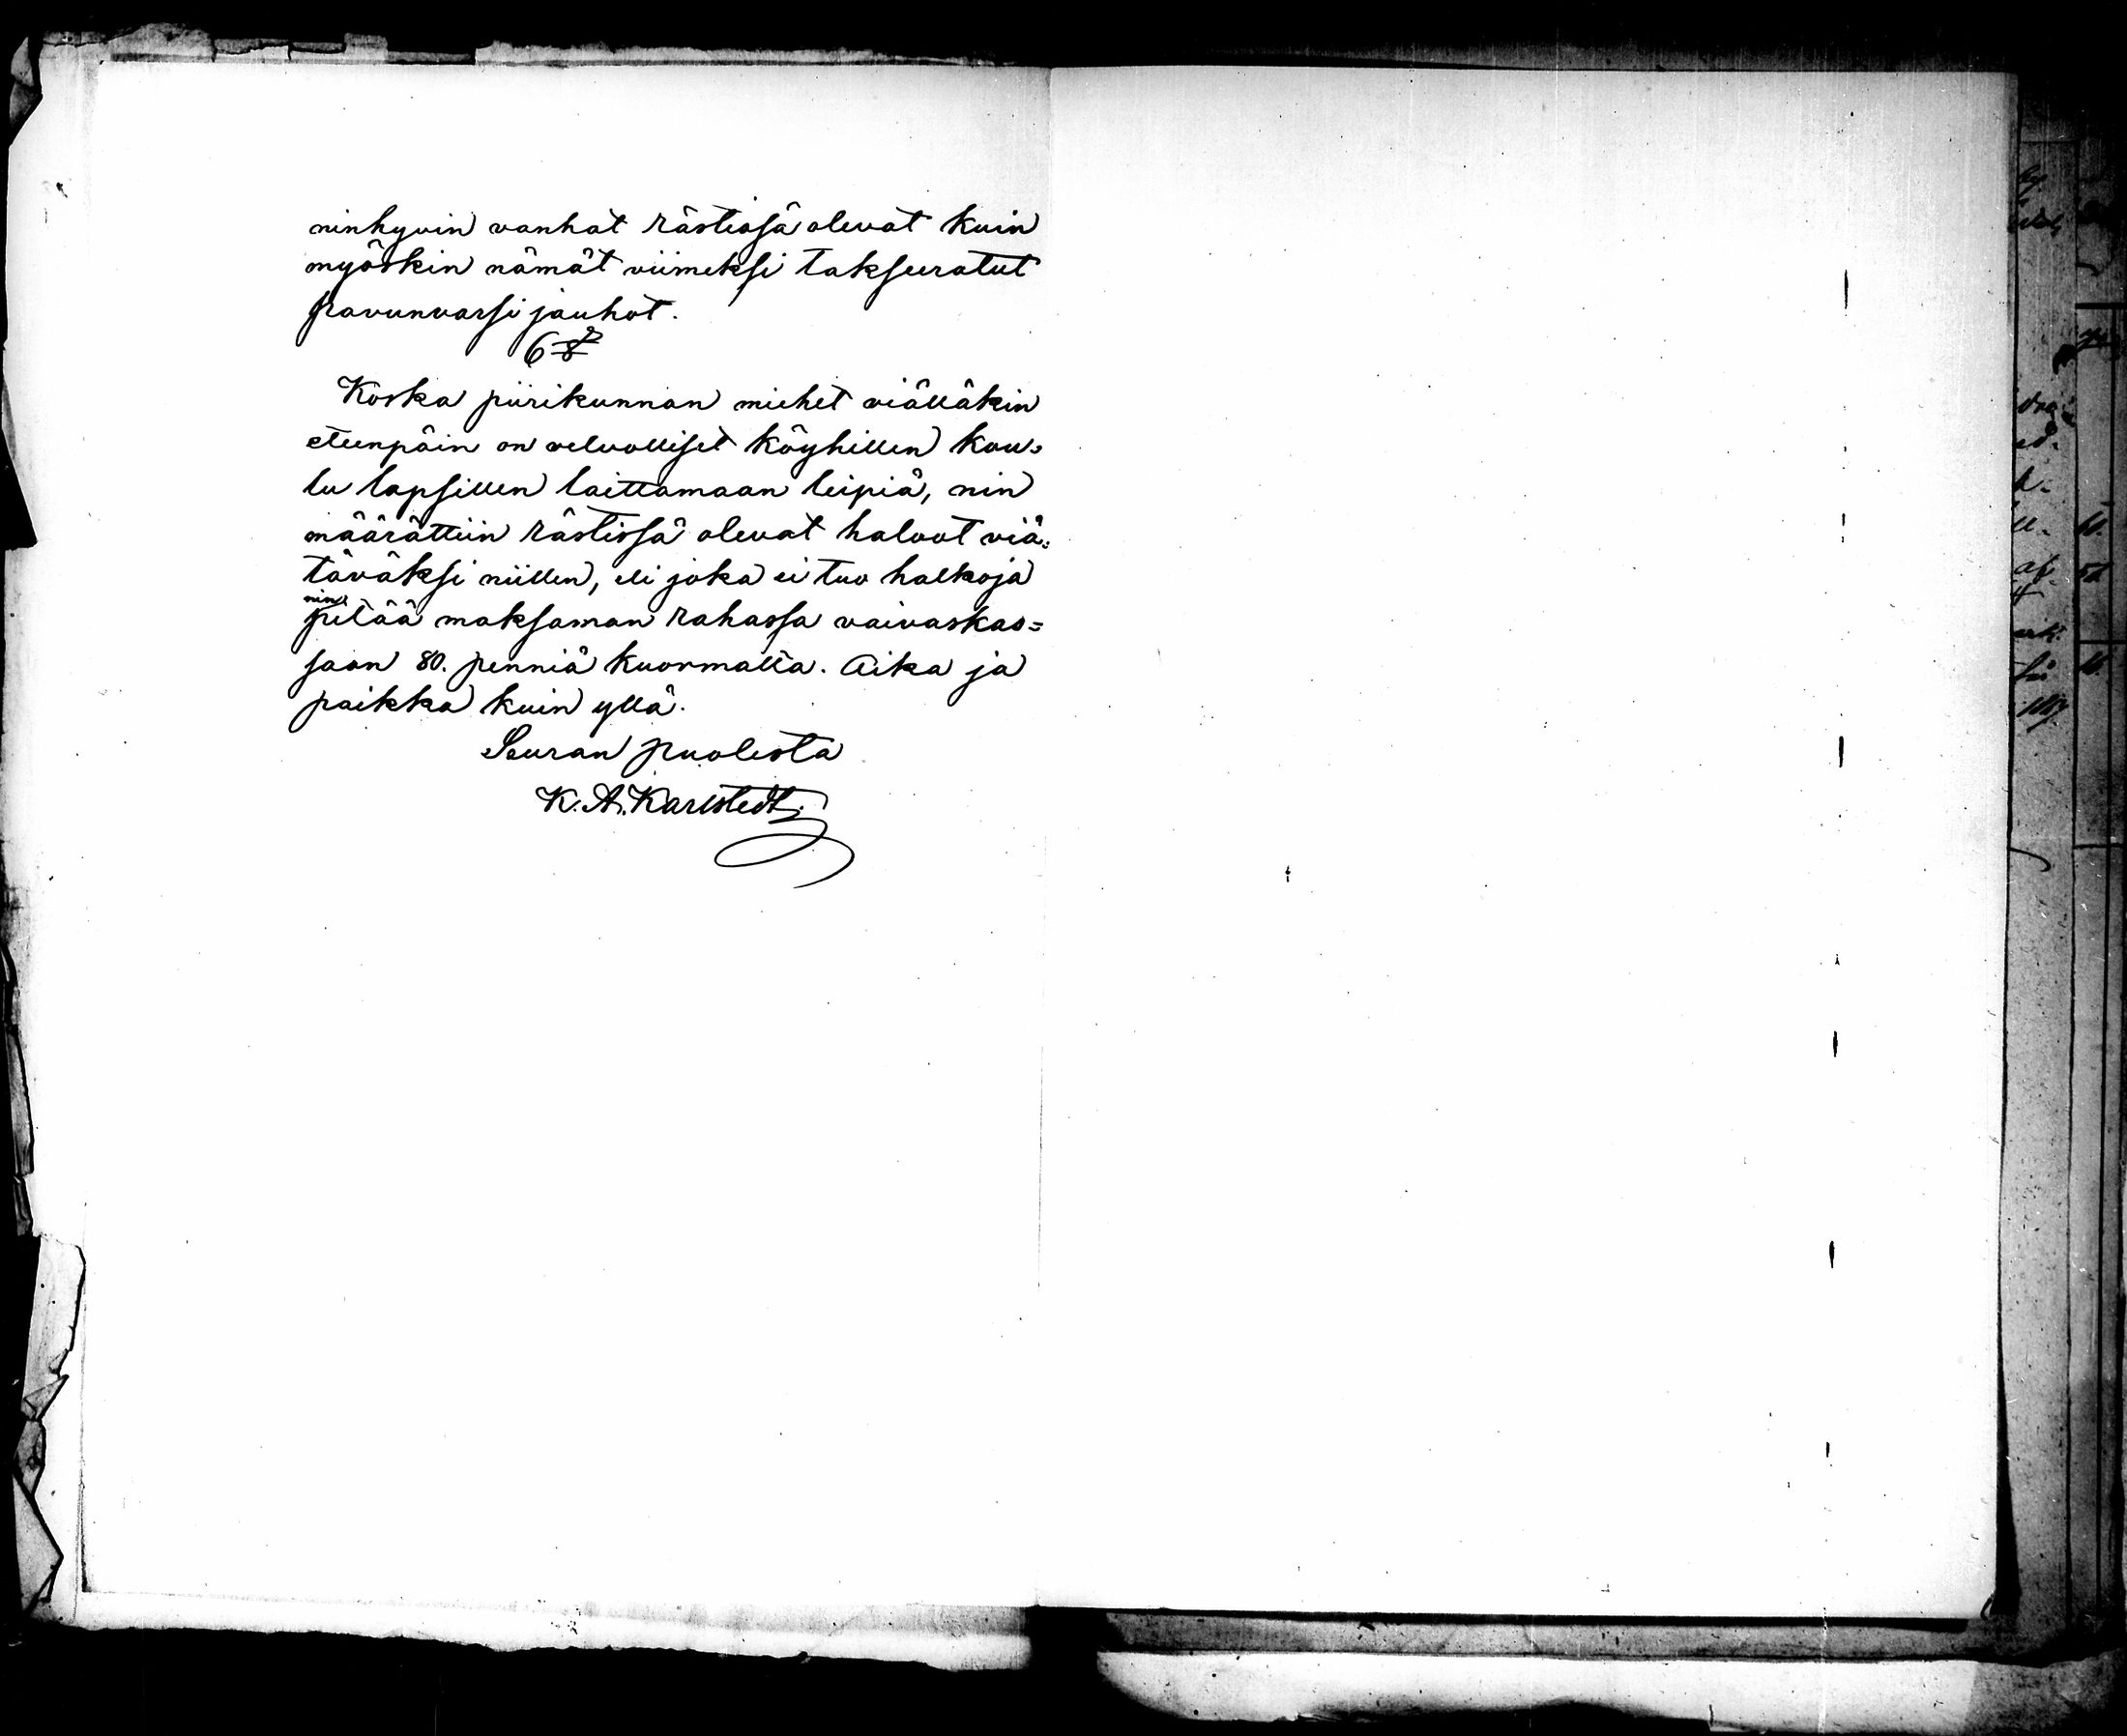 ninhyvin vanhat rästissä olevat kuin
myöskin nämät viimeksi takseeratut
pavunvarsi jauhot.
6 §
Koska piirikunnan miehet viälläkin
eteenpäin on velvolliset köyhillen kou=
lu lapsillen laittamaan leipiä, nin
määrättiin rästissä olevat halvot viä=
täväksi niillen, eli joka ei tuo halkoja
nin pitää maksaman rahassa vaivaskas=
saan 80. penniä kuormalta. Aika ja
paikka kuin yllä.
Seuran puolesta
K. A. Karlstedt.